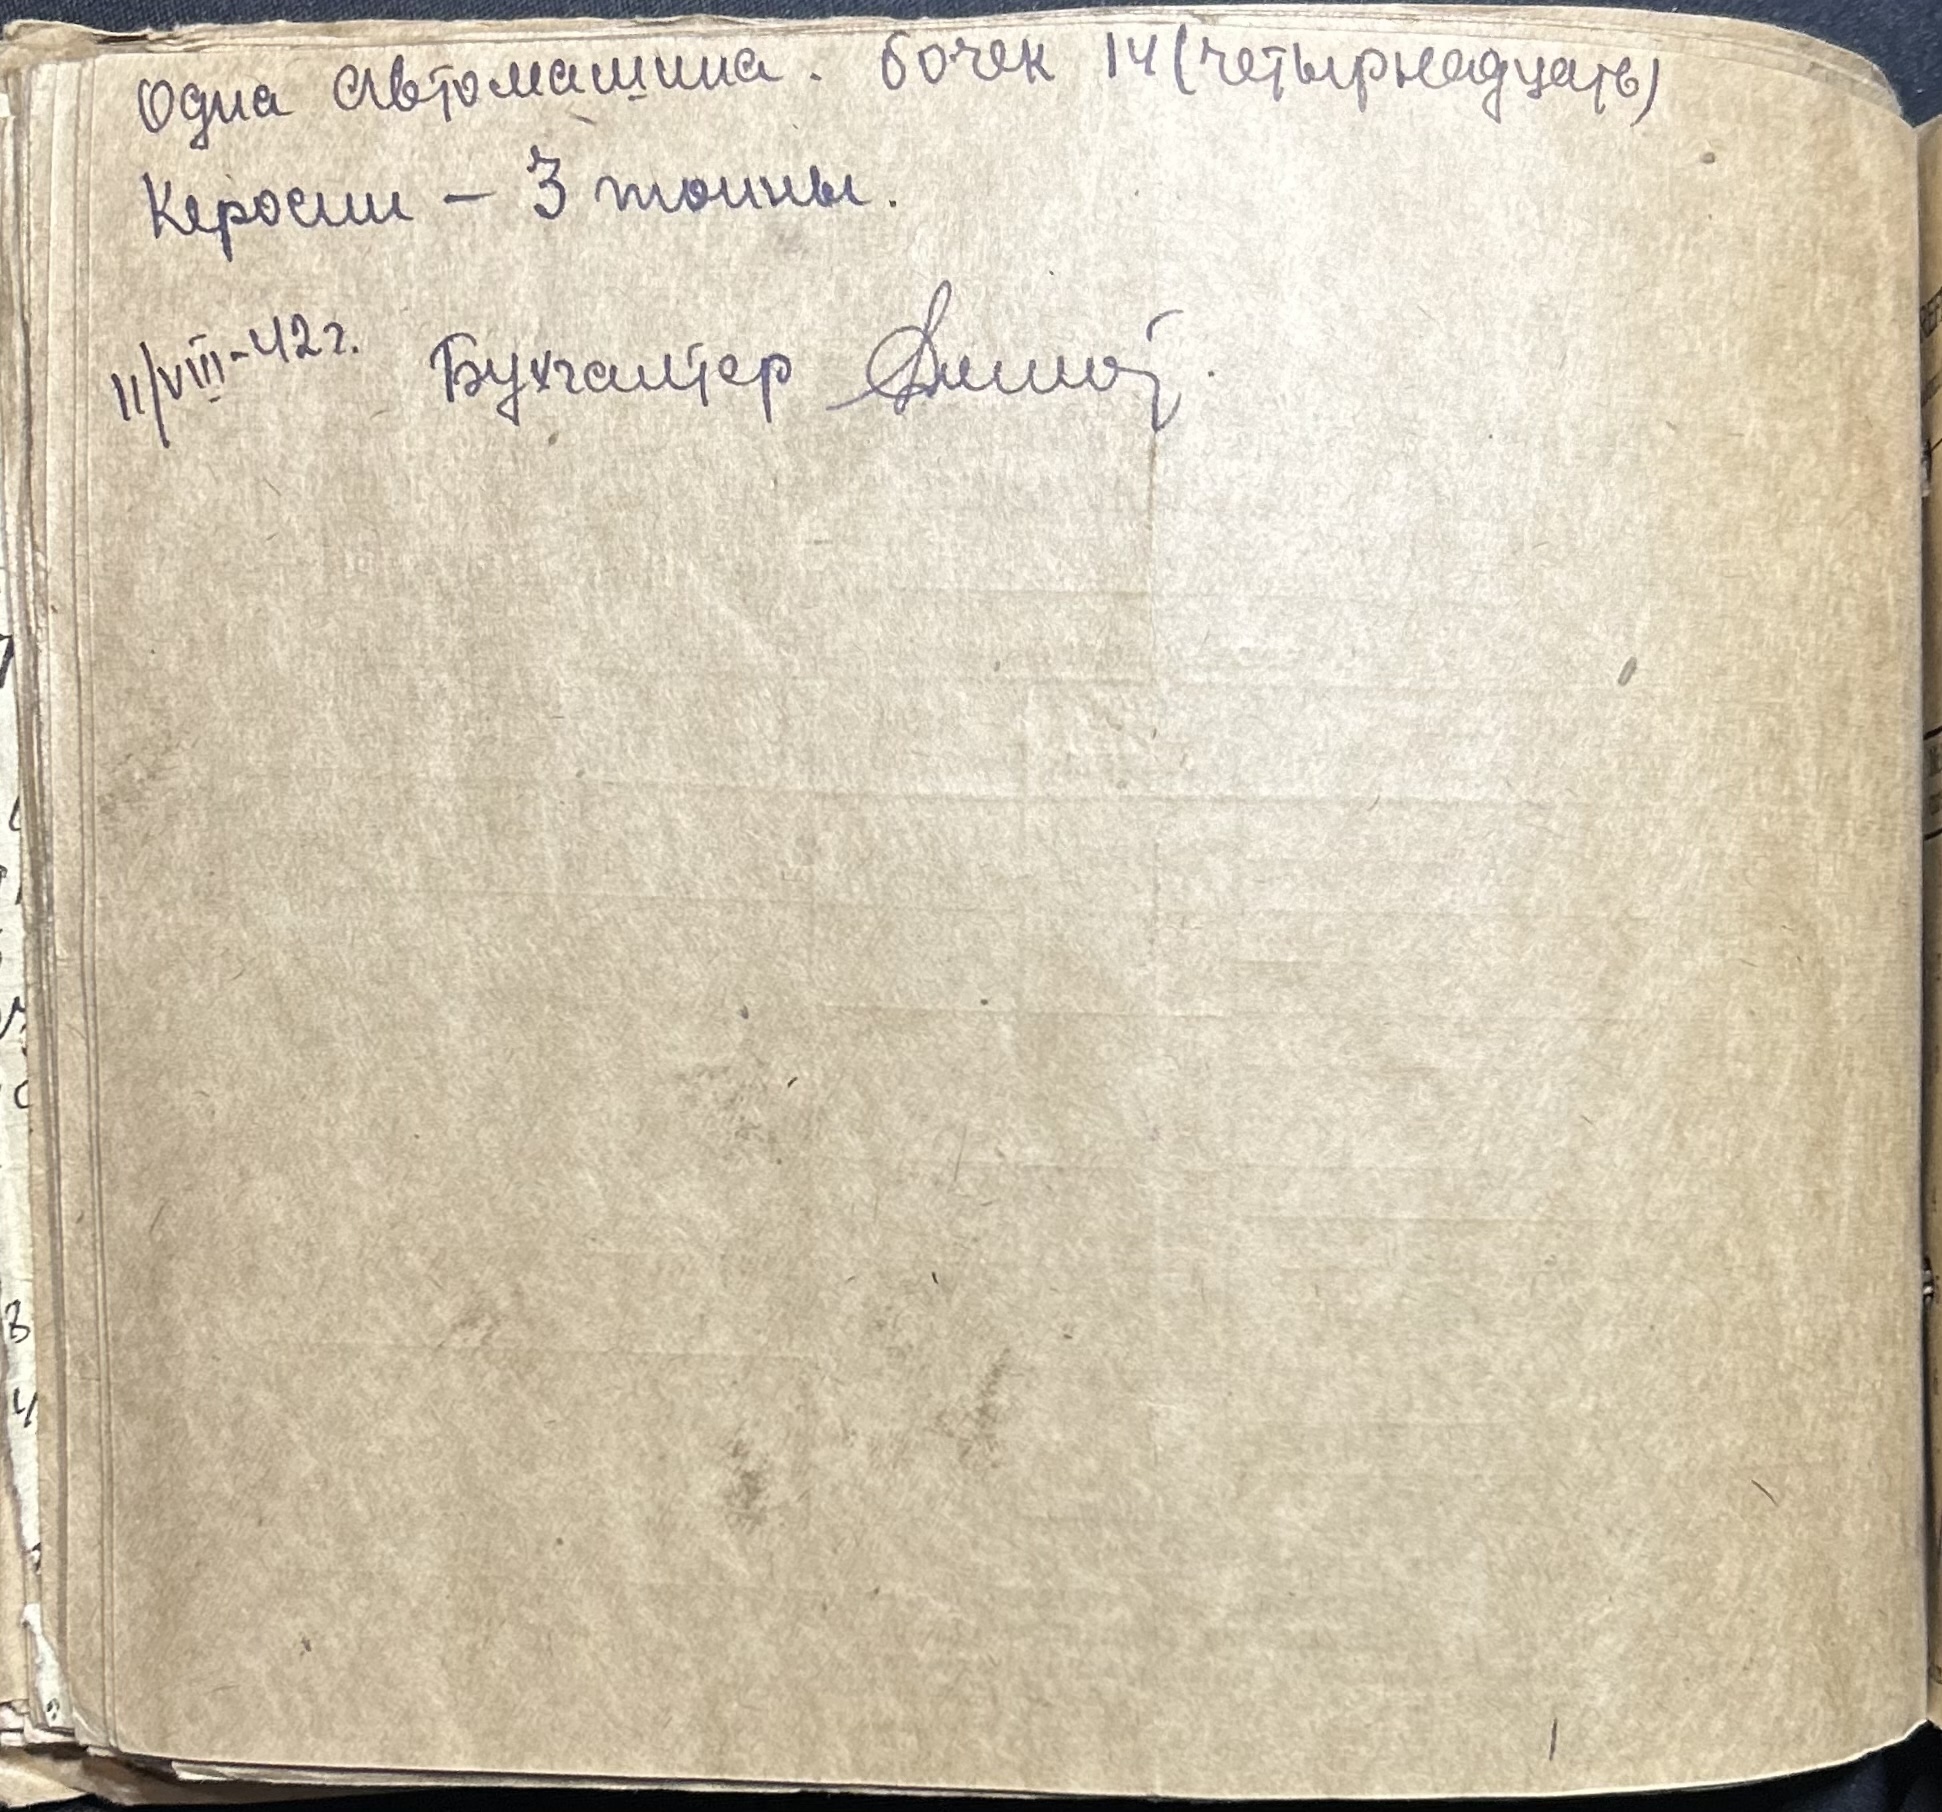 Одна автомашина. бочек 14 (четырнадцать)
Керосин – 3 тонны.
11/VIII-42г. Бухгалтер